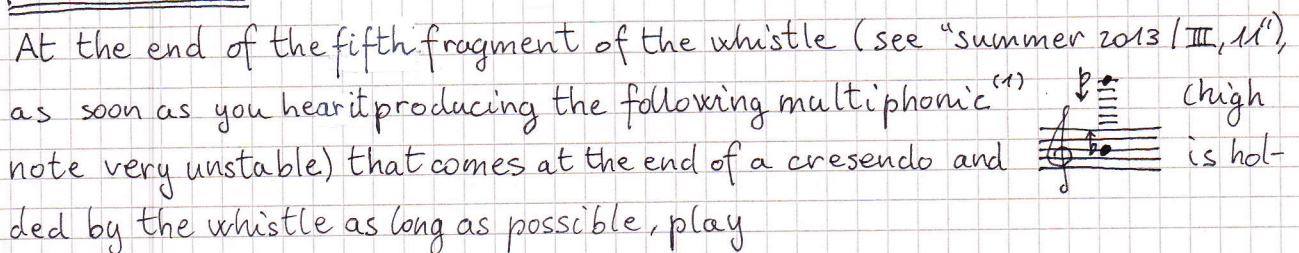 At the end of the fifth fragment of the whistle (see "summer 2013 / III, 11"),
as soon as you hear it producing the following multiphonic (1) (high
note very unstable) that comes at the end of a cresendo and is hol-
ded by the whistle as long as possible, play